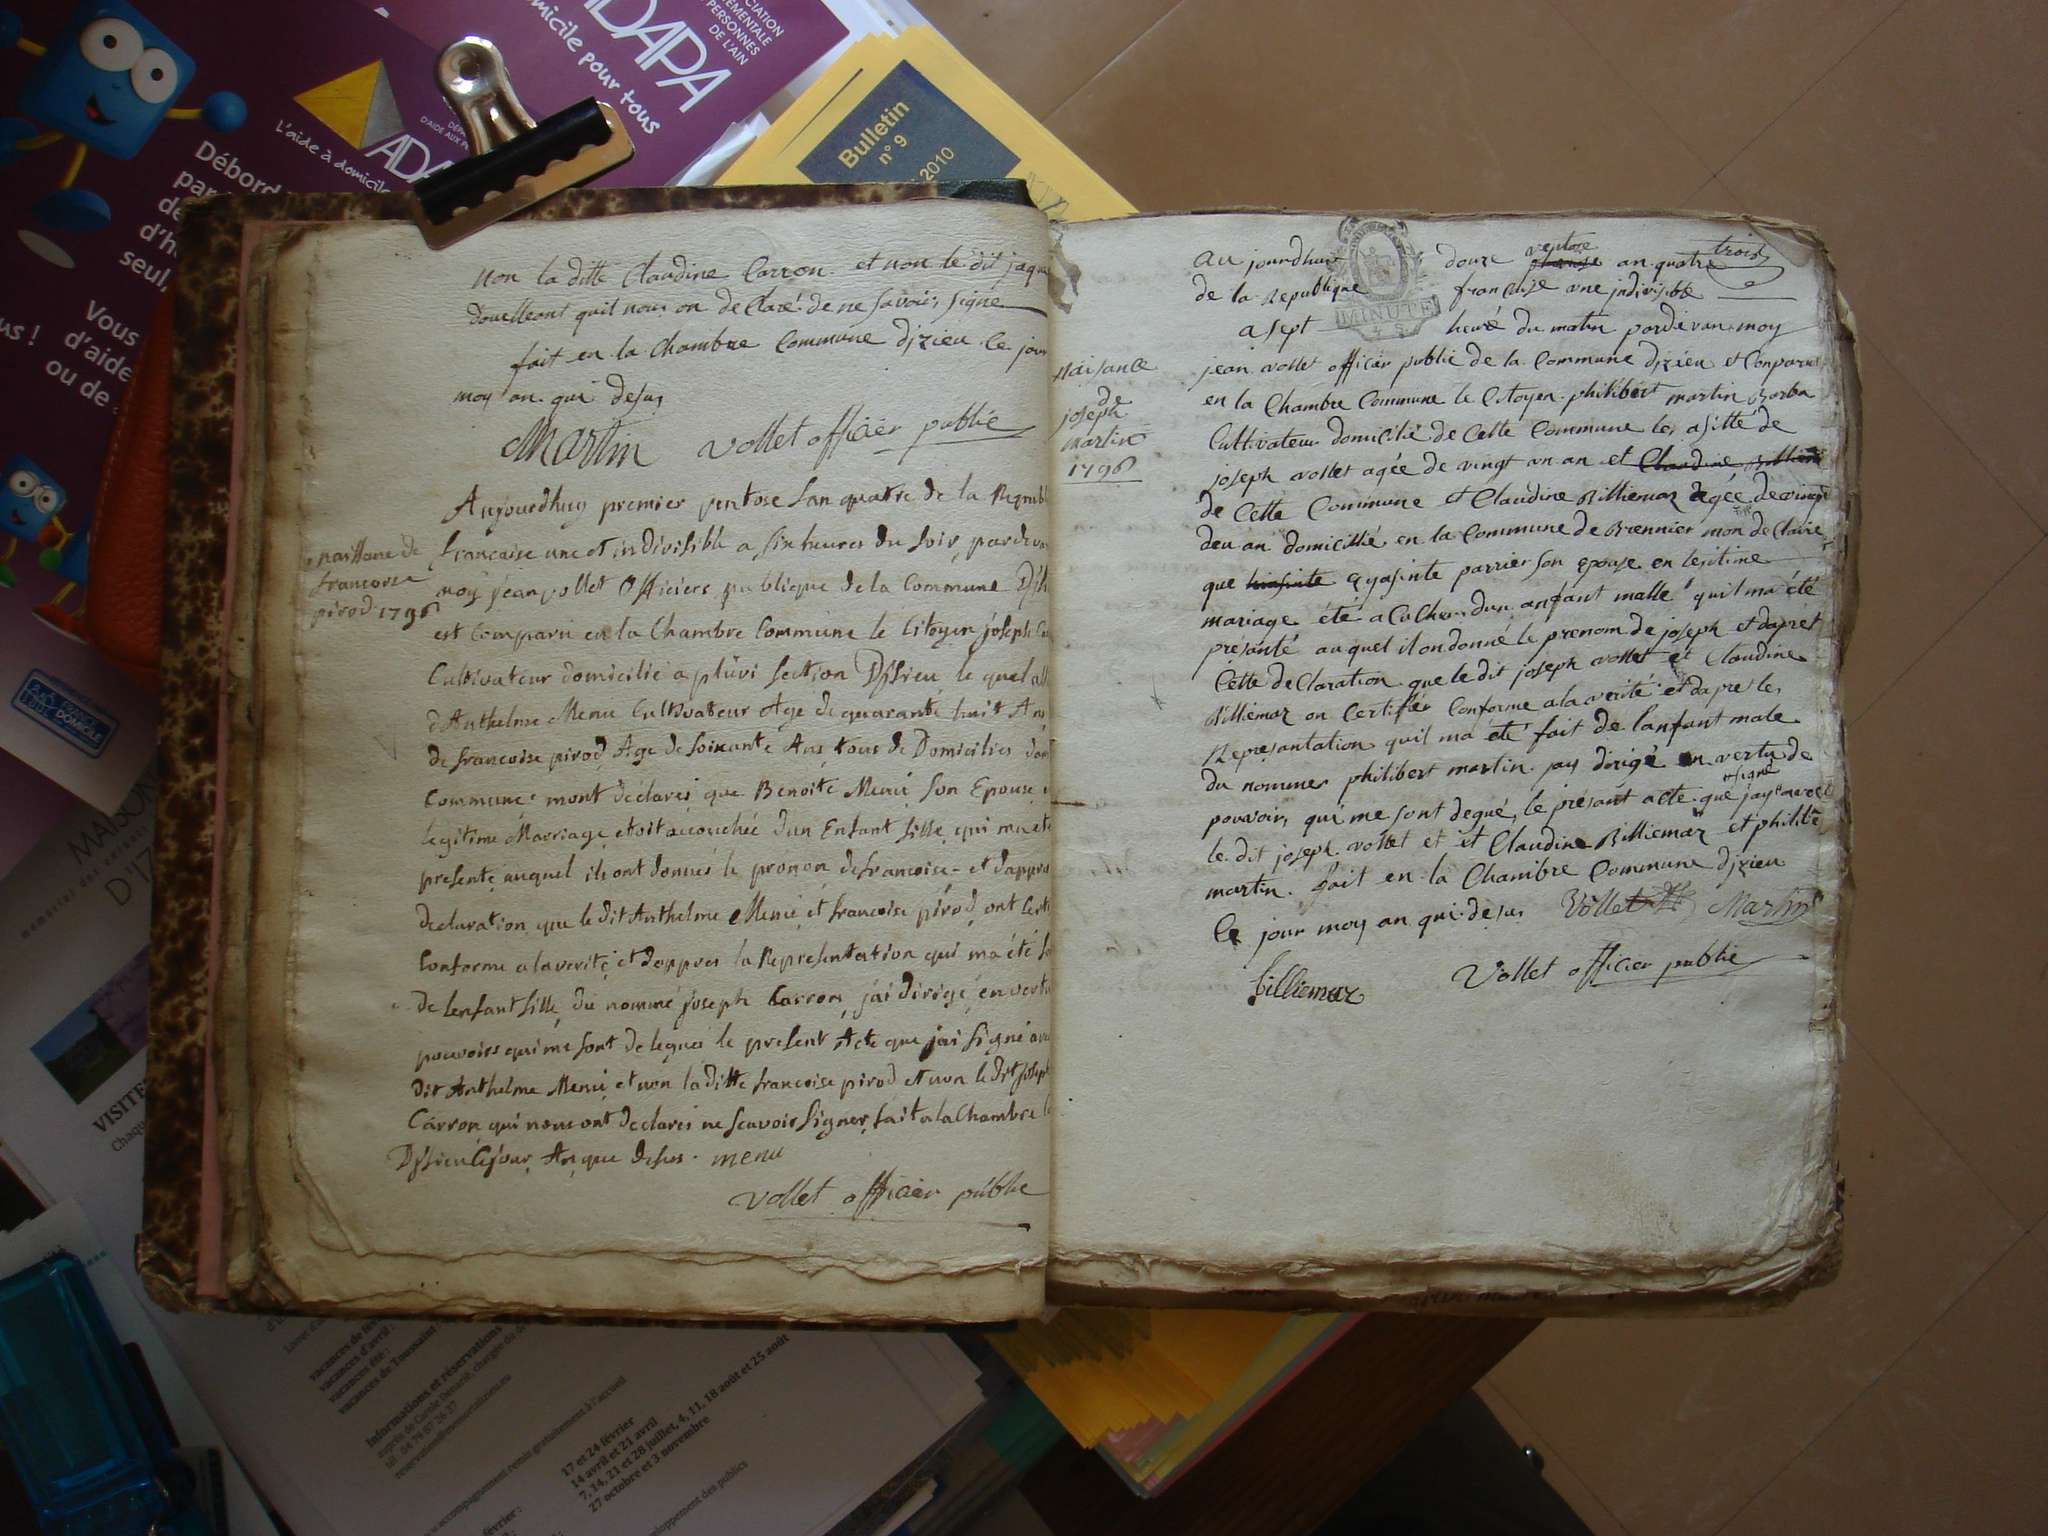 ADAPA
L'aide à domicile
ADA
omicile pour tous
CIATION
TEMENTALE
PERSONNES
DE L'AIN
Débord
par
de
d'h
seul,
Vous
d'aide
ou de
us !
Bulletin
n° 9
2010
non la ditte Claudine Carron et non le dit jaque
douelleant quil nous on de Claré de ne savoir signe
fait en la Chambre Commune dizieu Ce jour
moy an qui desus
Martin vollet officier public
naissane de
francoise
pirod 1796
Aujourdhuy premier ventose Lan quatre de la Republ
francaise une et indivisible a six heures du soir, pardeva
moy jean vollet Officiers publique de la Commune
est Comparu en la Chambre Commune le Citoyen joseph Ca
Cultivateur domicilié a pluvi section Dysieu le quel
d'Anthelme Menu Cultivateur Age de quarante huit Ans
de francoise pirod Age de soixante Ans tous de Domiciliés dans
Commune mont déclarés que Benoite Menu Son Epouse
legitime Marriage etoit acouchée d'un Enfant fille qui ma ete
presenté auquel ils ont donnés le pronon de francoise et dappres
declaration que le dit Anthelme Menu et francoise pirod ont Certi
Conforme a la verité et dappres la Representation qui ma été fa
de lenfant fille du nommé joseph Carron j'ai dirigé en vertu
pouvoirs qui me sont delegués le present Acte que jai signé ave
dit Anthelme Menu et non la ditte francoise pirod et non le dit joseph
Carron qui nous ont declarés ne scavoir signer, fait a la Chambre
Dysieu Cejour An que desus. menu
vollet officier public
MINUTE
Naisance
de
joseph
martin
1796
au jourdhui douze ventose an quatre trois
de la Republique francaise une indivisible
a sept heure du matin pardevan moy
jean vollet officier public de la Commune dizieu et Conparu
en la Chambre Commune le Citoyen philibert martin Barba
Cultivateur domicilié de Cette Commune les asitté de
joseph vollet agée de vingt un an et Claudine Billiemaz
de Cette Commune et Claudine Billiemaz agée de vingt
deu an domicillié en la Commune de Brennier mon de Claire
que hiasinte eyasinte parrier son epouse en legitime
mariage été a Cuchee dun anfant malle quil ma été
présanté auquel il on donné le prenom de joseph et daprét
Cette de Claration que le dit joseph vollet et Claudine
Billiemaz on Certifier Conforme a la verité et dapre les
Represantation quil ma été fait de l'anfant male
du nommer philibert martin jay dirigé en vertu de
pouvoirs qui me sont degué, le présant acte que jay signé avec
le dit joseph vollet et et Claudine Billiemaz et philibe
martin. fait en la Chambre Commune dizieu
Ce jour moy an qui desus Vollet Martin
billiemaz Vollet officier public
DOMICILE
MAISON
D'IZ
VISITE
Chaqu
vacances de
vacances d'avril :
vacances été :
vacances de Toussaint
Informations et réservations
tél. 04 79 87 26 27
accompagnement remis gratuitement à l'accueil
17 et 24 février
14 avril et 21 avril
7, 14, 21 et 28 juillet, 4, 11, 18 août et 25 août
27 octobre et 3 novembre
février :
développement des publics